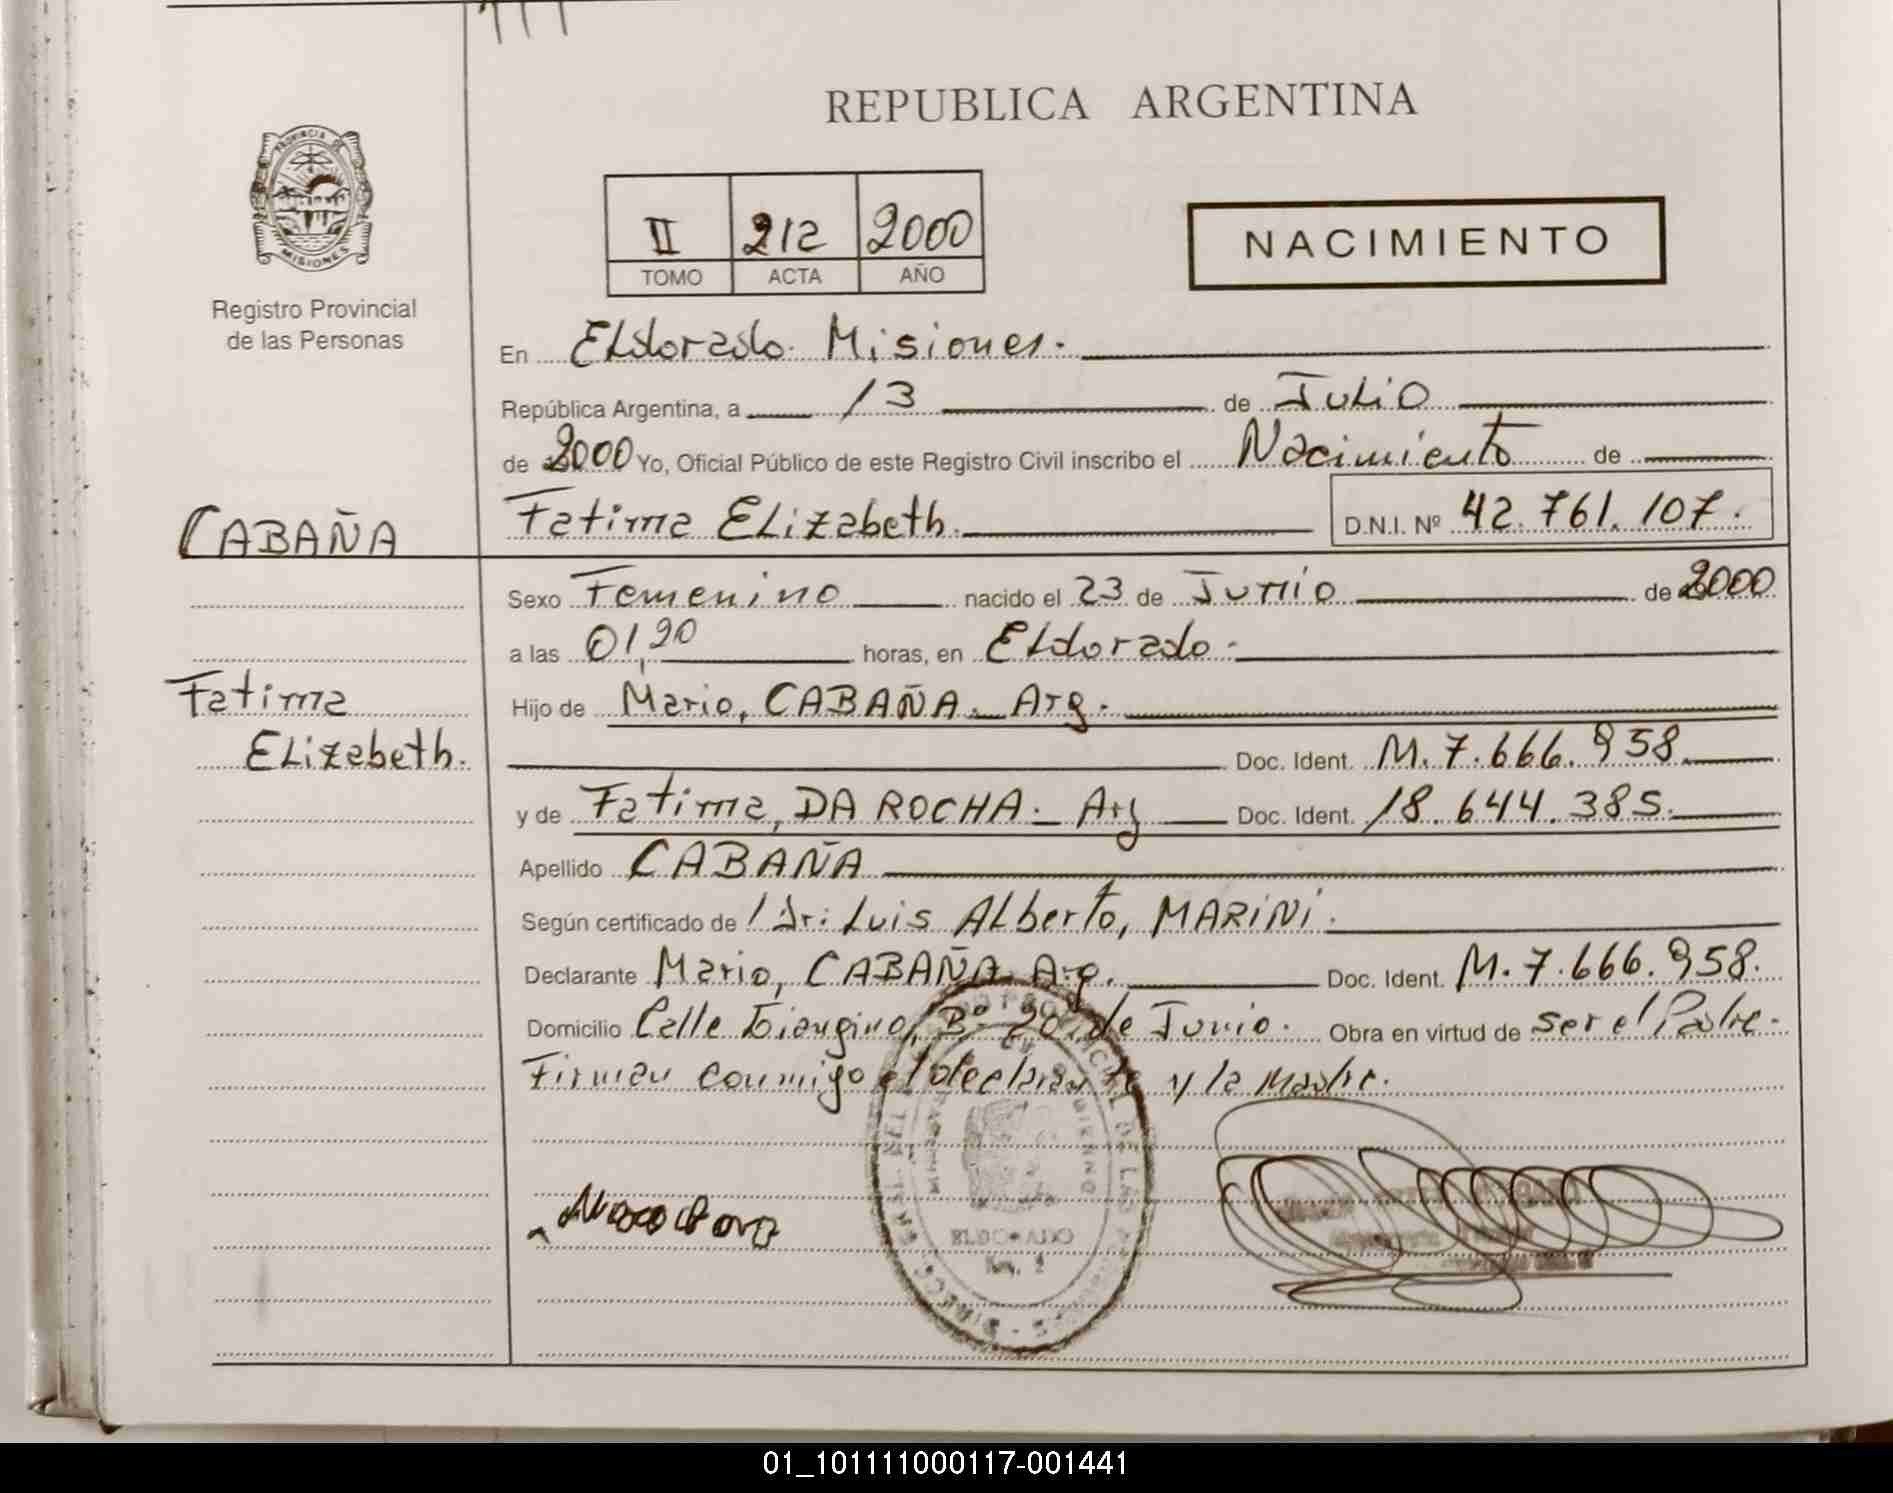 REPUBLICA ARGENTINA
PROVINCIA DE
MISIONES
Registro Provincial
de las Personas
II 212 2000
TOMO ACTA AÑO
NACIMIENTO
En Eldorado Misiones.
República Argentina, a 13 de Julio
de 2000 Yo, Oficial Público de este Registro Civil inscribo el Nacimiento de
Fatima Elizabeth. D.N.I. Nº 42.761.107.
CABAÑA
Sexo Femenino nacido el 23 de Junio de 2000
a las 01,20 horas, en Eldorado.
Fatima
Elizabeth.
Hijo de Mario, CABAÑA. Arg.
Doc. Ident. M. 7.666.958
y de Fatima, DA ROCHA. Arg Doc. Ident. 18.644.385.
Apellido CABAÑA
Según certificado de Dr: Luis Alberto, MARINI.
Declarante Mario, CABAÑA. Arg. Doc. Ident. M. 7.666.958.
Domicilio Calle Bº 20 de Junio. Obra en virtud de ser el Padre.
Firman conmigo el declarante y la Madre.
ELDORADO
01_101111000117-001441